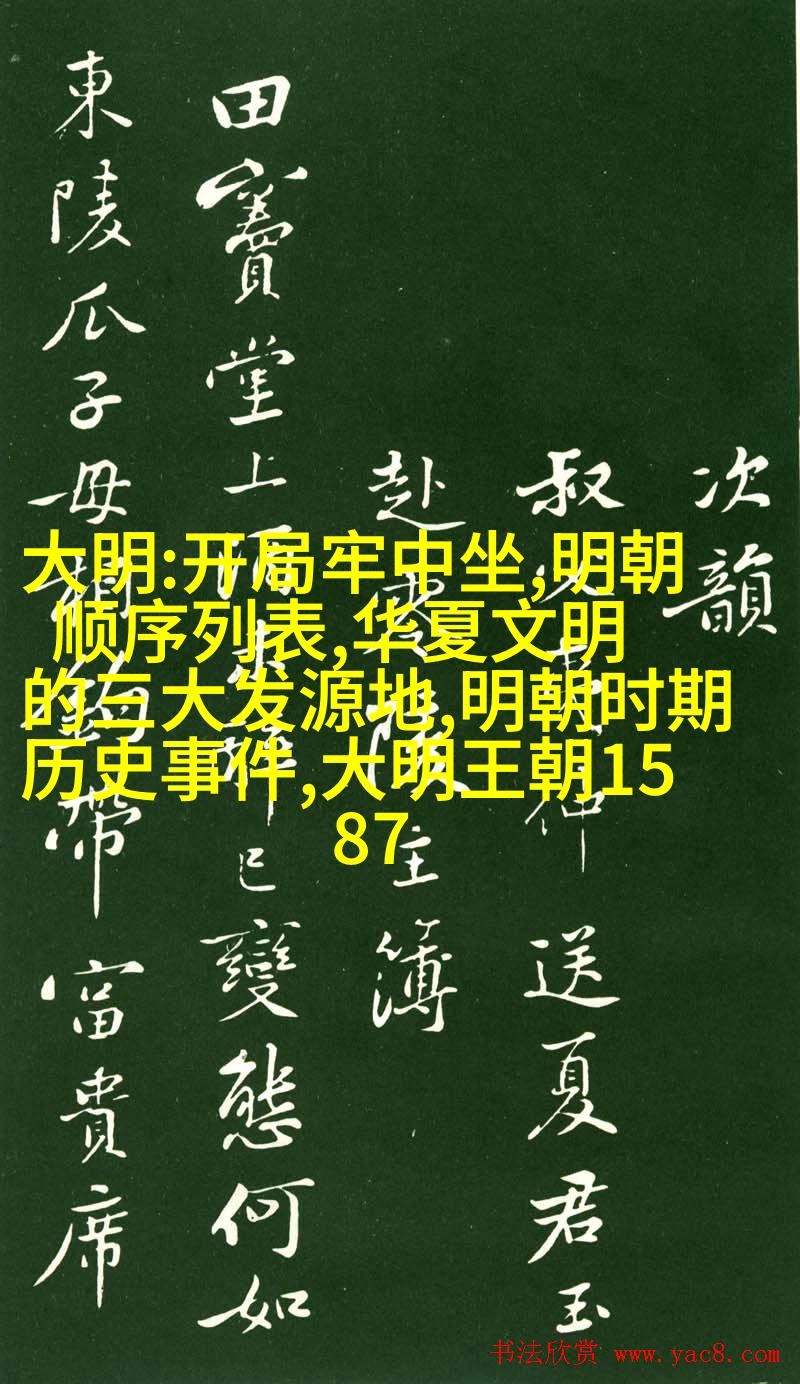 次韻
叔仲送夏君玉
赴零陵主簿
田竇堂上酒已變態何如
東陵瓜子母相鉤帶富貴席
大明:开局牢中坐,明朝
顺序列表,华夏文明
的三大发源地,明朝时期
历史事件,大明王朝15
87
书法欣赏 www.yac8.com